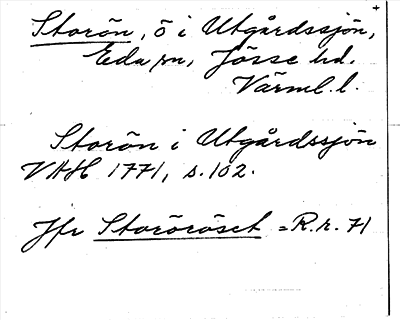 Storön, ö i Utgårdssjön,
Eda sn, Jösse hd.
Värml. l.
Storön i Utgårdssjön
VAH 1771, s. 102.
Jfr Storöröset = R.r. 71